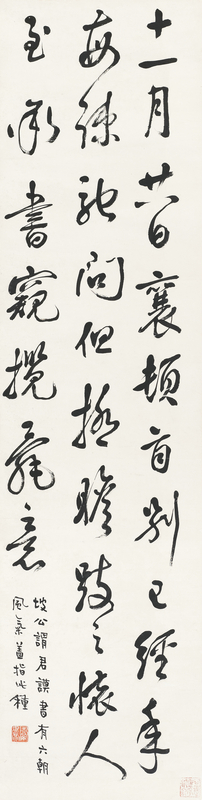 十一月廿日襄頓首別已經年
每疎馳問但極瞻跂之懷人
至承書窺攬意
坡公謂君謨書有六朝
風氣蓋指此種